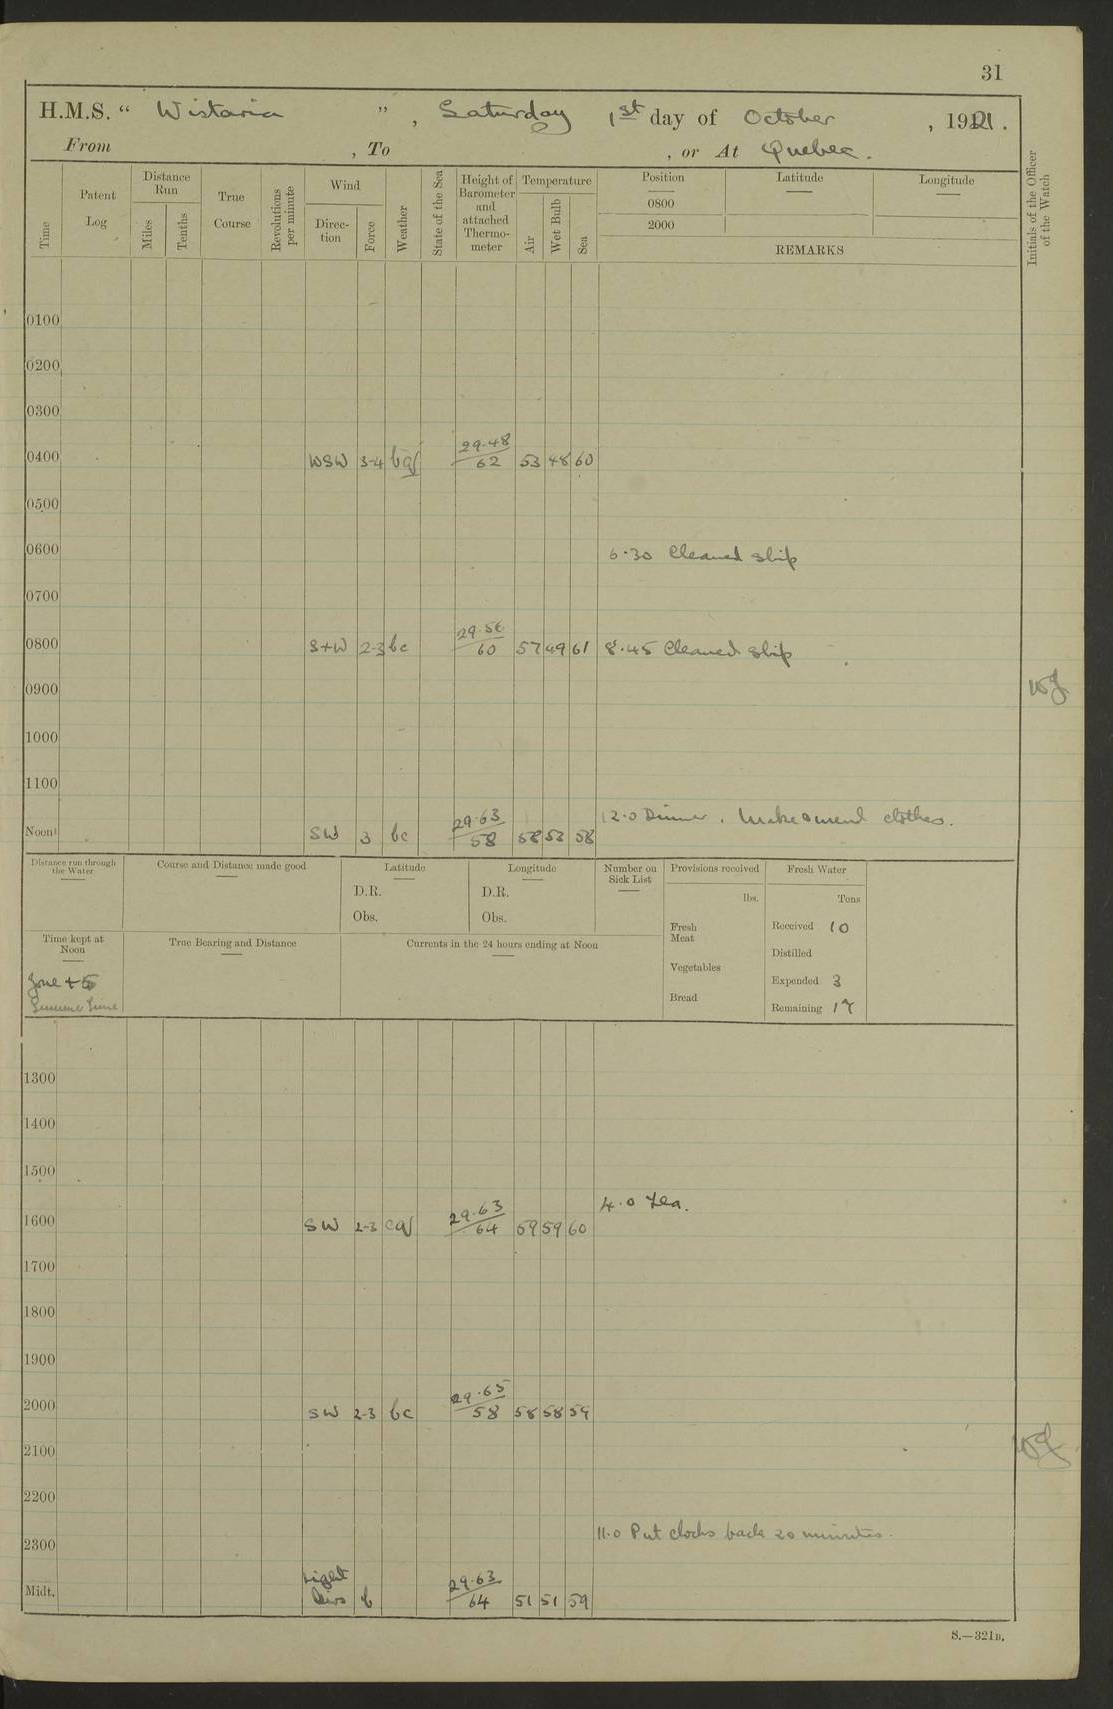 31
H.M.S. “ Wistaria ” , Saturday 1st day of October , 1921.
From , To , or At Quebec.
Time
Patent Log
Distance Run
Miles
Tenths
True Course
Revolutions per minute
Wind
Direc-tion
Force
Weather
State of the Sea
Height of Barometer and attached Thermo-meter
Temperature
Air
Wet Bulb
Sea
Position
Latitude
Longitude
0800
2000
REMARKS
Initials of the Officer of the Watch
0100
0200
0300
0400 WSW 3-4 bq 29.48/62 53 48 60
0500
0600 6.30 Cleaned ship
0700
0800 S+W 2-3 bc 29.56/60 57 49 61 8.45 Cleaned ship
0900
1000
1100
12.0 Dinner. Make & mend clothes.
Noon SW 3 bc 29.63/58 58 53 58
Distance run through the Water
Course and Distance made good
Latitude
D.R.
Obs.
Longitude
D.R.
Obs.
Number on Sick List
Provisions received
lbs.
Fresh Meat
Vegetables
Bread
Fresh Water
Tons
Received 10
Distilled
Expended 3
Remaining 17
Time kept at Noon
Zone + 5
Summer Time
True Bearing and Distance
Currents in the 24 hours ending at Noon
1300
1400
1500
4.0 Tea.
1600 SW 2-3 cq 29.63/64 59 59 60
1700
1800
1900
2000 SW 2-3 bc 29.65/58 58 58 59
2100
2200
11.0 Put clocks back 20 minutes.
2300
Midt. Light Airs b 29.63/64 51 51 59
S.—321B.